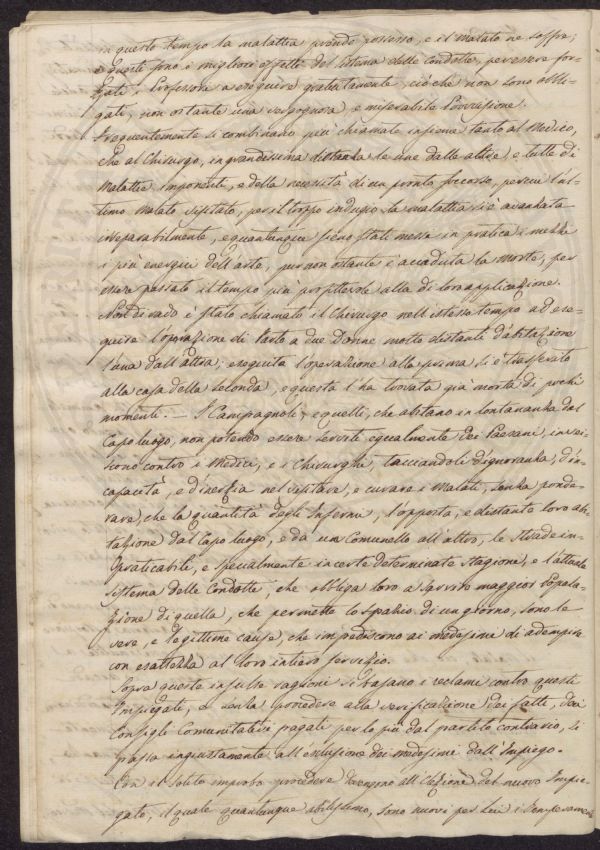 in questo tempo la malattia prende possesso, e il Malato ne soffre;
e questi sono i migliori effetti del sistema delle Condotte, per essere for-
zati i Professori a eseguire gratuitamente, ciò che non sono obbli-
gati, non ostante una vergognosa e miserabile Provvisione.
Frequentemente si combinano più chiamate insieme tanto al Medico,
che al Chirurgo, in grandissima distanza le une dalle altre, e tutte di
Malattie imponenti, e della necessità di un pronto soccorso, percui l'ul-
timo Malato visitato, per il troppo indugio la malattia si è avanzata
irreparabilmente, e quantunque sieno stati messi in pratica i mezzi
i più energici dell'arte, pur non ostante è accaduta la morte, per
essere passato il tempo più profittevole alla di loro applicazione.
Non di rado è stato chiamato il Chirurgo nell'istesso tempo ad ese-
guire l'operazione di parto a due Donne molto distanti d'abitazione
l'una dall'altra; eseguita l'operazione alla prima si è trasferito
alla casa della seconda, e questa l'ha trovata già morta di pochi
momenti. — I Campagnoli, e quelli, che abitano in lontananza dal
Capo luogo, non potendo essere serviti egualmente dei Paesani, inveis-
cono contro i Medici, e i Chirurghi, tacciandoli d'ignoranza, d'in-
capacità, e d'inerzia nel visitare, e curare i Malati, senza ponde-
rare, che la quantità degli Infermi, l'opposta, e distante loro abi-
tazione dal Capo luogo, e da un Comunello all'altro, le strade im-
praticabili, e specialmente in certe determinate stagioni, e l'attuale
sistema delle Condotte, che obbliga loro a servire maggior Popola-
zione di quella, che permette lo spazio di un giorno, sono le
vere, e legittime cause, che impediscono ai medesimi di adempire
con esattezza al loro intiero servizio.
Sopra queste insulse ragioni si basano i reclami contro questi
Impiegati, e senza procedere alla verificazione dei fatti, dai
Consigli Comunitativi pagati per lo più dal partito contrario, si
passa ingiustamente all'esclusione dei medesimi dall'Impiego.
Con il solito improbo procedere vengono all'Elezione del nuovo Impie-
gato, il quale quantunque abilissimo, sono nuovi per Lui i Temperamenti